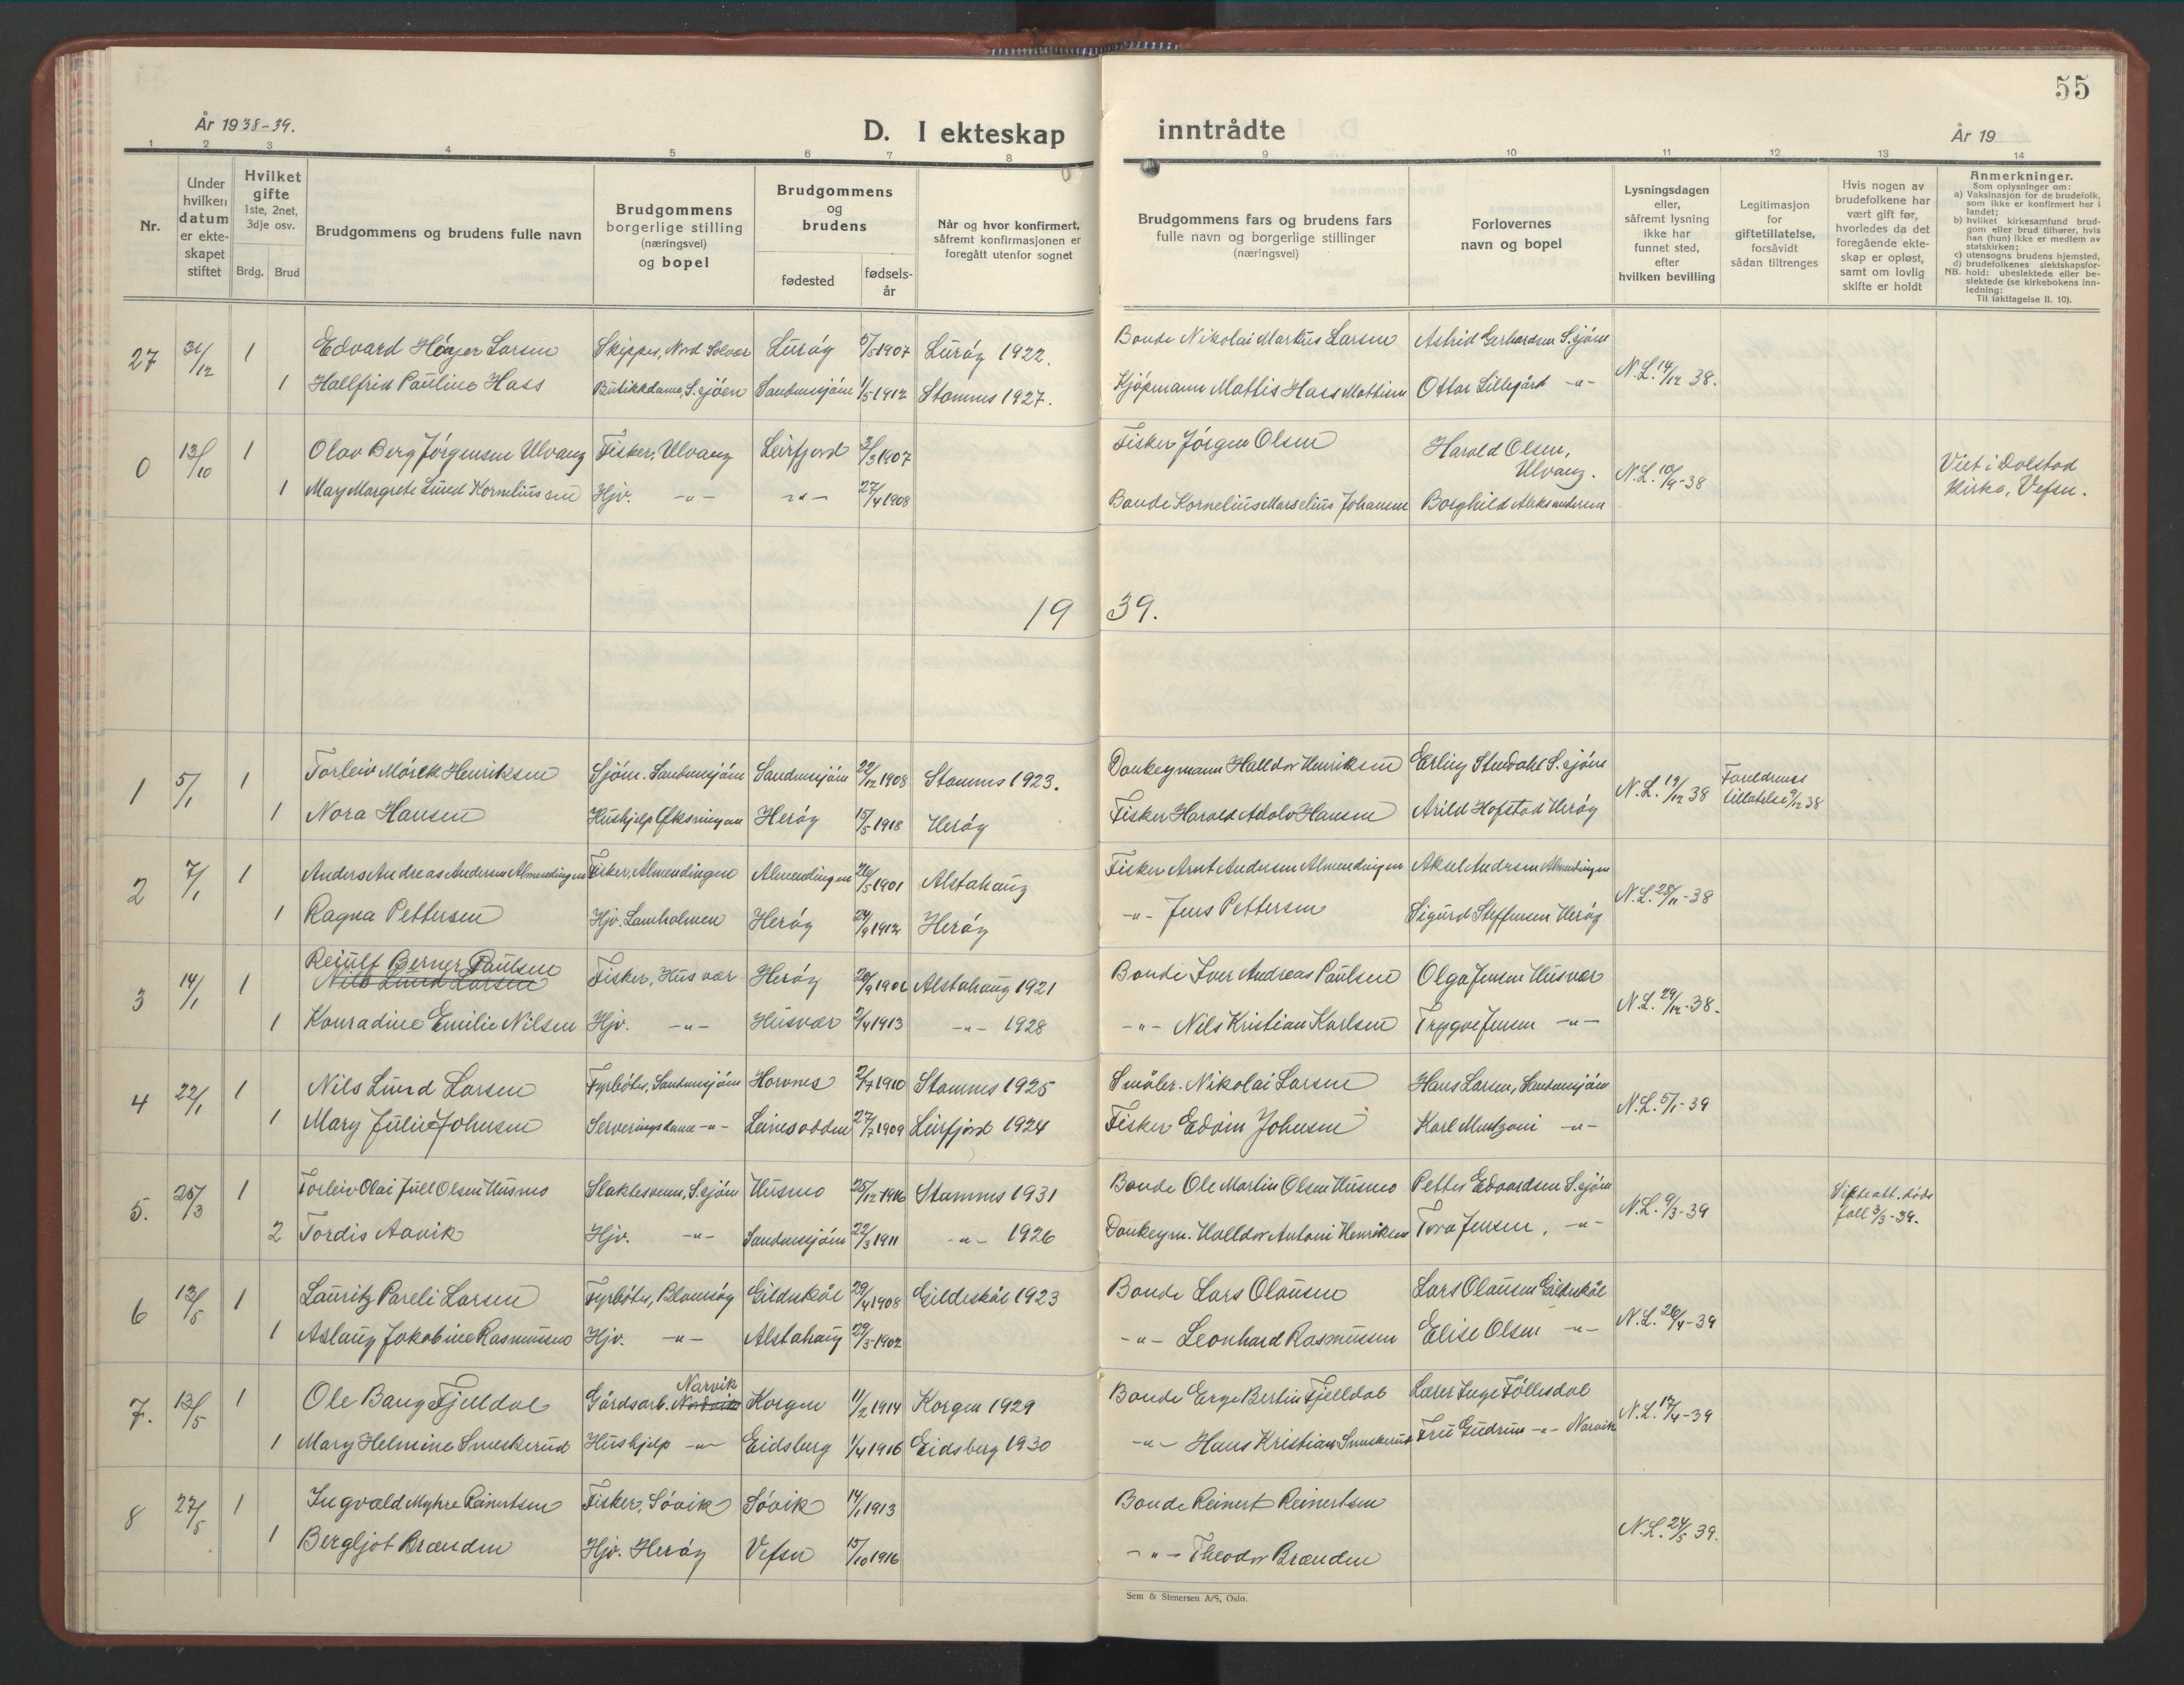 55
År 1938-39.
D. I ekteskap inntrådte
År 19
1 2 3 4 5 6 7 8 9 10 11 12 13 14
Nr.
Under hvilken datum er ekteskapet stiftet
Hvilket gifte 1ste, 2net, 3dje osv.
Brdg. Brud
Brudgommens og brudens fulle navn
Brudgommens borgerlige stilling (næringsvei) og bopel
Brudgommens og brudens
fødested
fødselsår
Når og hvor konfirmert, såfremt konfirmasjonen er foregått utenfor sognet
Brudgommens fars og brudens fars fulle navn og borgerlige stillinger (næringsvei)
Forlovernes navn og bopel
Lysningsdagen eller, såfremt lysning ikke har funnet sted, efter hvilken bevilling
Legitimasjon for giftetillatelse, forsåvidt sådan tiltrenges
Hvis nogen av brudefolkene har vært gift før, hvorledes da det foregående ekteskap er opløst, samt om lovlig skifte er holdt
Anmerkninger.
Som oplysninger om:
a) Vaksinasjon for de brudefolk, som ikke er konfirmert her i landet;
b) hvilket kirkesamfund brudgom eller brud tilhører, hvis han (hun) ikke er medlem av statskirken;
c) utensogns brudens hjemsted,
d) brudefolkenes slektskapsforhold: ubeslektede eller beslektede (se kirkebokens innledning:
NB. Til iakttagelse II. 10).
27 31/12 1 Edvard Høyer Larsen Skipper, Nord Solvær Lurøy 5/5 1907 Lurøy 1922. Bonde Nikolai Markus Larsen Astrid Gerhardsen S.sjøen N.L. 14/12 38.
1 Hallfrid Pauline Hass Butikkdame, S.sjøen Sandnessjøen 1/5 1912 Stamnes 1927. Kjøpmann Mattis Hass Mattisen Ottar Lillegård -"-
0 13/10 1 Olav Berg Jørgensen Ulvang Fisker, Ulvang Leirfjord 3/3 1907 Fisker Jørgen Olsen Harald Olsen, Ulvang. N.L. 10/9-38 Viet i Dolstad Kirke, Vefsn.
1 May Margrete Lund Korneliussen Hjv. -"- -"- 27/4 1908 Bonde Kornelius Marselius Johansen Borghild Aleksandersen
1939.
1 5/1 1 Torleiv Mörck Henriksen Sjöm. Sandnessjøen Sandnessjøen 22/12 1908 Stamnes 1923. Donkeymann Halldor Henriksen Erling Stendahl S.sjøen N.L. 19/12 38 Foreldrenes tillatelse 9/12 38
1 Nora Hansen Hushjelp Herøy 15/5 1918 Herøy Fisker Harald Adolv Hansen Arild Hofstad Herøy
2 7/1 1 Anders Andreas Andersen Almendingen Fisker, Almendingen Almendingen 26/5 1901 Alstahaug Fisker Arnt Andersen Almendingen Aksel Andersen Almendingen N.L. 28/11-38
1 Ragna Pettersen Hjv. Lamholmen Herøy 24/9 1912 Herøy -"- Jens Pettersen Sigurd Steffensen Herøy
3 14/1 1 Reiulf Berner Paulsen Fisker, Husvær Herøy 20/9 1906 Alstahaug 1921 Bonde Iver Andreas Paulsen Olga Jensen Husvær N.L. 29/12-38.
Nils Lund Larsen
1 Konradine Emilie Nilsen Hjv. -"- Husvær 2/4 1913 -"- 1928 -"- Nils Kristian Karlsen Trygve Jensen -"-
4 22/1 1 Nils Lund Larsen Fyrbøter, Sandnessjøen Horvnes 2/7 1910 Stamnes 1925 Småbr. Nikolai Larsen Hans Larsen, Sandnessjøen N.L. 5/1-39
1 Mary Julie Johnsen Serveringsdame -"- Leinesodden 27/7 1909 Leirfjord 1924 Fisker Edvin Johnsen Karl -"-
5. 25/3 1 Torleiv Olai Jull Olsen Husmo Slaktersvenn, S.sjøen Husmo 25/12 1916 Stamnes 1931 Bonde Ole Martin Olsen Husmo Petter Edvardsen S.sjøen N.L. 9/3-39 Skifteatt. dødsfall 3/3-39.
2 Tordis Aavik Hjv. -"- Sandnessjøen 22/3 1911 -"- 1926 Donkeym. Halldor Antoni Henriksen Tora Jensen, -"-
6 13/5 1 Lauritz Pareli Larsen Fyrbøter, Blomsøy Gildeskål 29/4 1908 Gildeskål 1923 Bonde Lars Olausen Lars Olausen Gildeskål N.L. 26/4-39
1 Aslaug Jakobine Rasmussen Hjv. -"- Alstahaug 29/3 1902 -"- Leonhard Rasmussen Elise Olsen -"-
7. 13/5 1 Ole Bang Fjelldal Gårdsarb. Nordvik Narvik Korgen 11/2 1914 Korgen 1929 Bonde Erge Bertin Fjelldal Lærer Inge Føllesdal N.L. 17/4-39
1 Mary Helmine Smeskerud Hushjelp -"- Eidsberg 1/4 1916 Eidsberg 1930 -"- Hans Kristian Smeskerud Fru Gudrun -"- Narvik
8 27/5 1 Ingvald Myhre Reinertsen Fisker, Søvik Søvik 14/1 1913 Bonde Reinert Reinertsen N.L. 24/5 39.
1 Bergljot Brænden Hjv. Herøy Vefsn 15/10 1916 -"- Theodor Brænden
Sem & Stenersen A/S, Oslo.